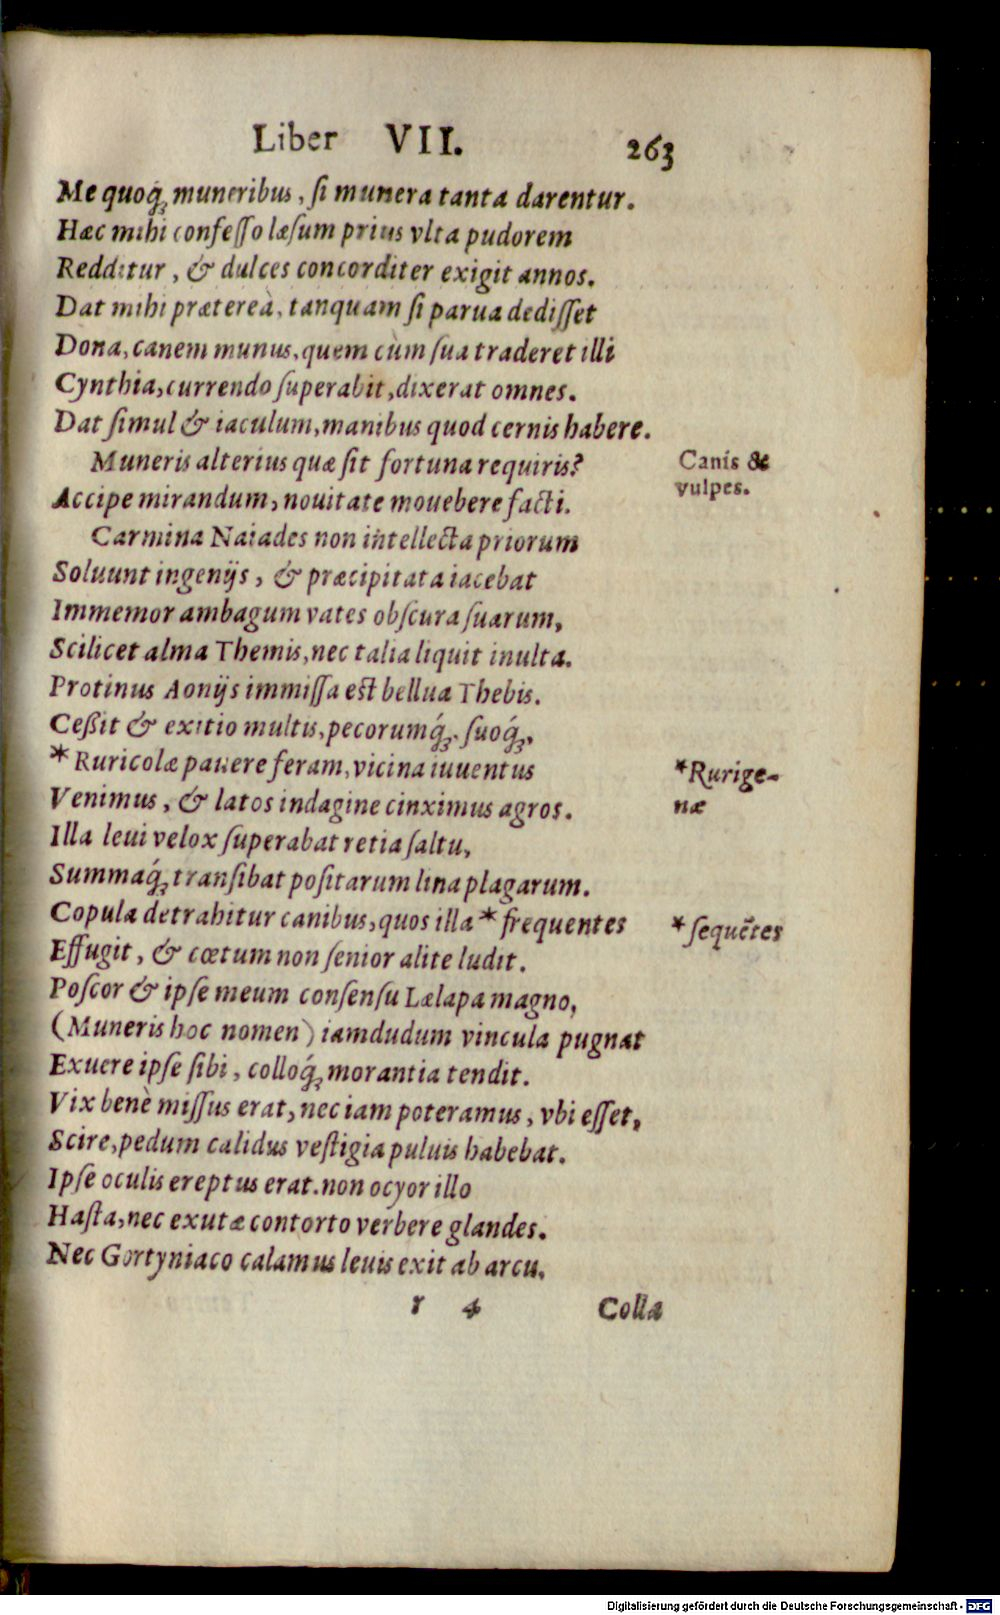 Liber VII. 263
Me quoq́; muneribus, ſi munera tanta darentur.
Hæc mihi confeſſo læſum prius vlta pudorem
Redditur, & dulces concorditer exigit annos.
Dat mihi prætereà, tanquam ſi parua dediſſet
Dona, canem munus, quem cùm ſua traderet illi
Cynthia, currendo ſuperabit, dixerat omnes.
Dat ſimul & iaculum, manibus quod cernis habere.
Muneris alterius quæ ſit fortuna requiris?
Canis &
vulpes.
Accipe mirandum, nouitate mouebere facti.
Carmina Naiades non intellecta priorum
Soluunt ingenijs, & præcipitata iacebat
Immemor ambagum vates obſcura ſuarum,
Scilicet alma Themis, nec talia liquit inulta.
Protinus Aonijs immiſſa est bellua Thebis.
Ceßit & exitio multis, pecorumq́;. ſuoq́;,
*Ruricolæ pauere feram, vicina iuuentus
*Rurige-
næ
Venimus, & latos indagine cinximus agros.
Illa leui velox ſuperabat retia ſaltu,
Summaq́; tranſibat poſitarum lina plagarum.
Copula detrahitur canibus, quos illa *frequentes
*ſequẽtes
Effugit, & cœtum non ſenior alite ludit.
Poſcor & ipſe meum conſenſu Lælapa magno,
(Muneris hoc nomen) iamdudum vincula pugnat
Exuere ipſe ſibi, colloq́; morantia tendit.
Vix benè miſſus erat, nec iam poteramus, vbi eſſet,
Scire, pedum calidus veſtigia puluis habebat.
Ipſe oculis ereptus erat. non ocyor illo
Haſta, nec exutæ contorto verbere glandes.
Nec Gortyniaco calamus leuis exit ab arcu,
r 4 Colla
Digitalisierung gefördert durch die Deutsche Forschungsgemeinschaft - DFG